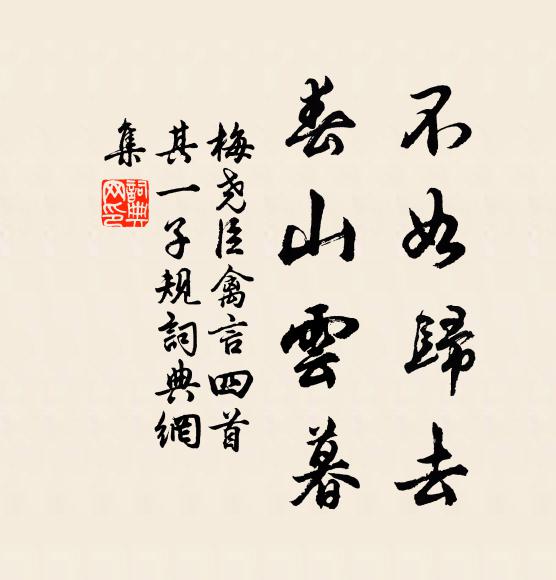 不如歸去
春山雲暮
梅尧臣禽言四首
其一子規詞典網
集
詞典
网印